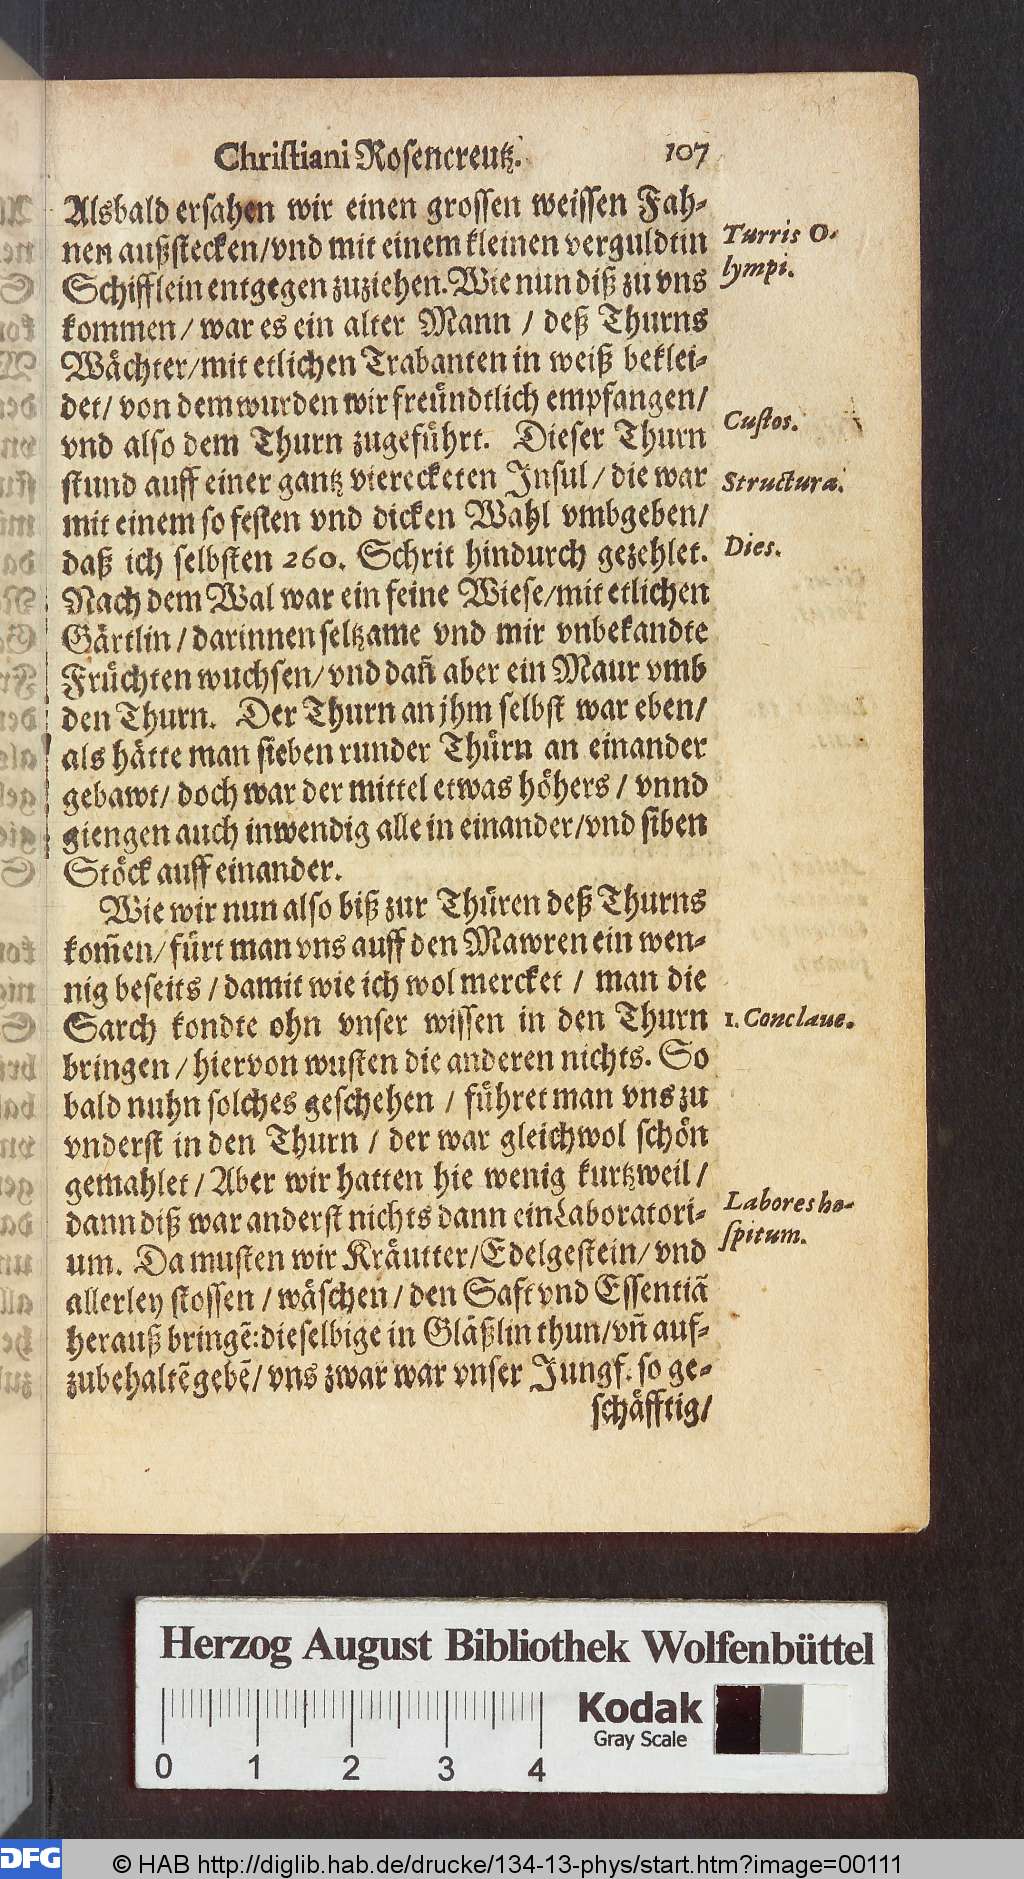 Christiani Rosencreutz. 107
Alsbald ersahen wir einen grossen weissen Fah-
nen außstecken/vnd mit einem kleinen verguldtin
Schifflein entgegen zuziehen. Wie nun diß zu vns
kommen/ war es ein alter Mann / deß Thurns
Wächter/mit etlichen Trabanten in weiß beklei-
det/ von dem wurden wir freündtlich empfangen/
vnd also dem Thurn zugeführt. Dieser Thurn
stund auff einer gantz vierecketen Insul/ die war
mit einem so festen vnd dicken Wahl vmbgeben/
daß ich selbsten 260. Schrit hindurch gezehlet.
Nach dem Wal war ein feine Wiese/mit etlichen
Gärtlin/ darinnen seltzame vnd mir vnbekandte
Früchten wuchsen/ vnd dañ aber ein Maur vmb
den Thurn. Der Thurn an jhm selbst war eben/
als hätte man sieben runder Thürn an einander
gebawt/ doch war der mittel etwas höhers / vnnd
giengen auch inwendig alle in einander/vnd siben
Stöck auff einander.
Wie wir nun also biß zur Thüren deß Thurns
kom̃en/ fürt man vns auff den Mawren ein wen-
nig beseits / damit wie ich wol mercket / man die
Sarch kondte ohn vnser wissen in den Thurn
bringen / hiervon wusten die anderen nichts. So
bald nuhn solches geschehen / führet man vns zu
vnderst in den Thurn / der war gleichwol schön
gemahlet / Aber wir hatten hie wenig kurtzweil /
dann diß war anderst nichts dann ein Laboratori-
um. Da musten wir Kräutter/Edelgestein/ vnd
allerley stossen / wäschen / den Saft vnd Essentiã
herauß bringẽ: dieselbige in Gläßlin thun/ vñ auf-
zubehaltẽ gebẽ/ vns zwar war vnser Jungf. so ge-
schäfftig/
Turris O-
lympi.
Custos.
Structura.
Dies.
1. Conclaue.
Labores ho-
spitum.
Herzog August Bibliothek Wolfenbüttel
0 1 2 3 4
Kodak
Gray Scale
DFG
© HAB http://diglib.hab.de/drucke/134-13-phys/start.htm?image=00111